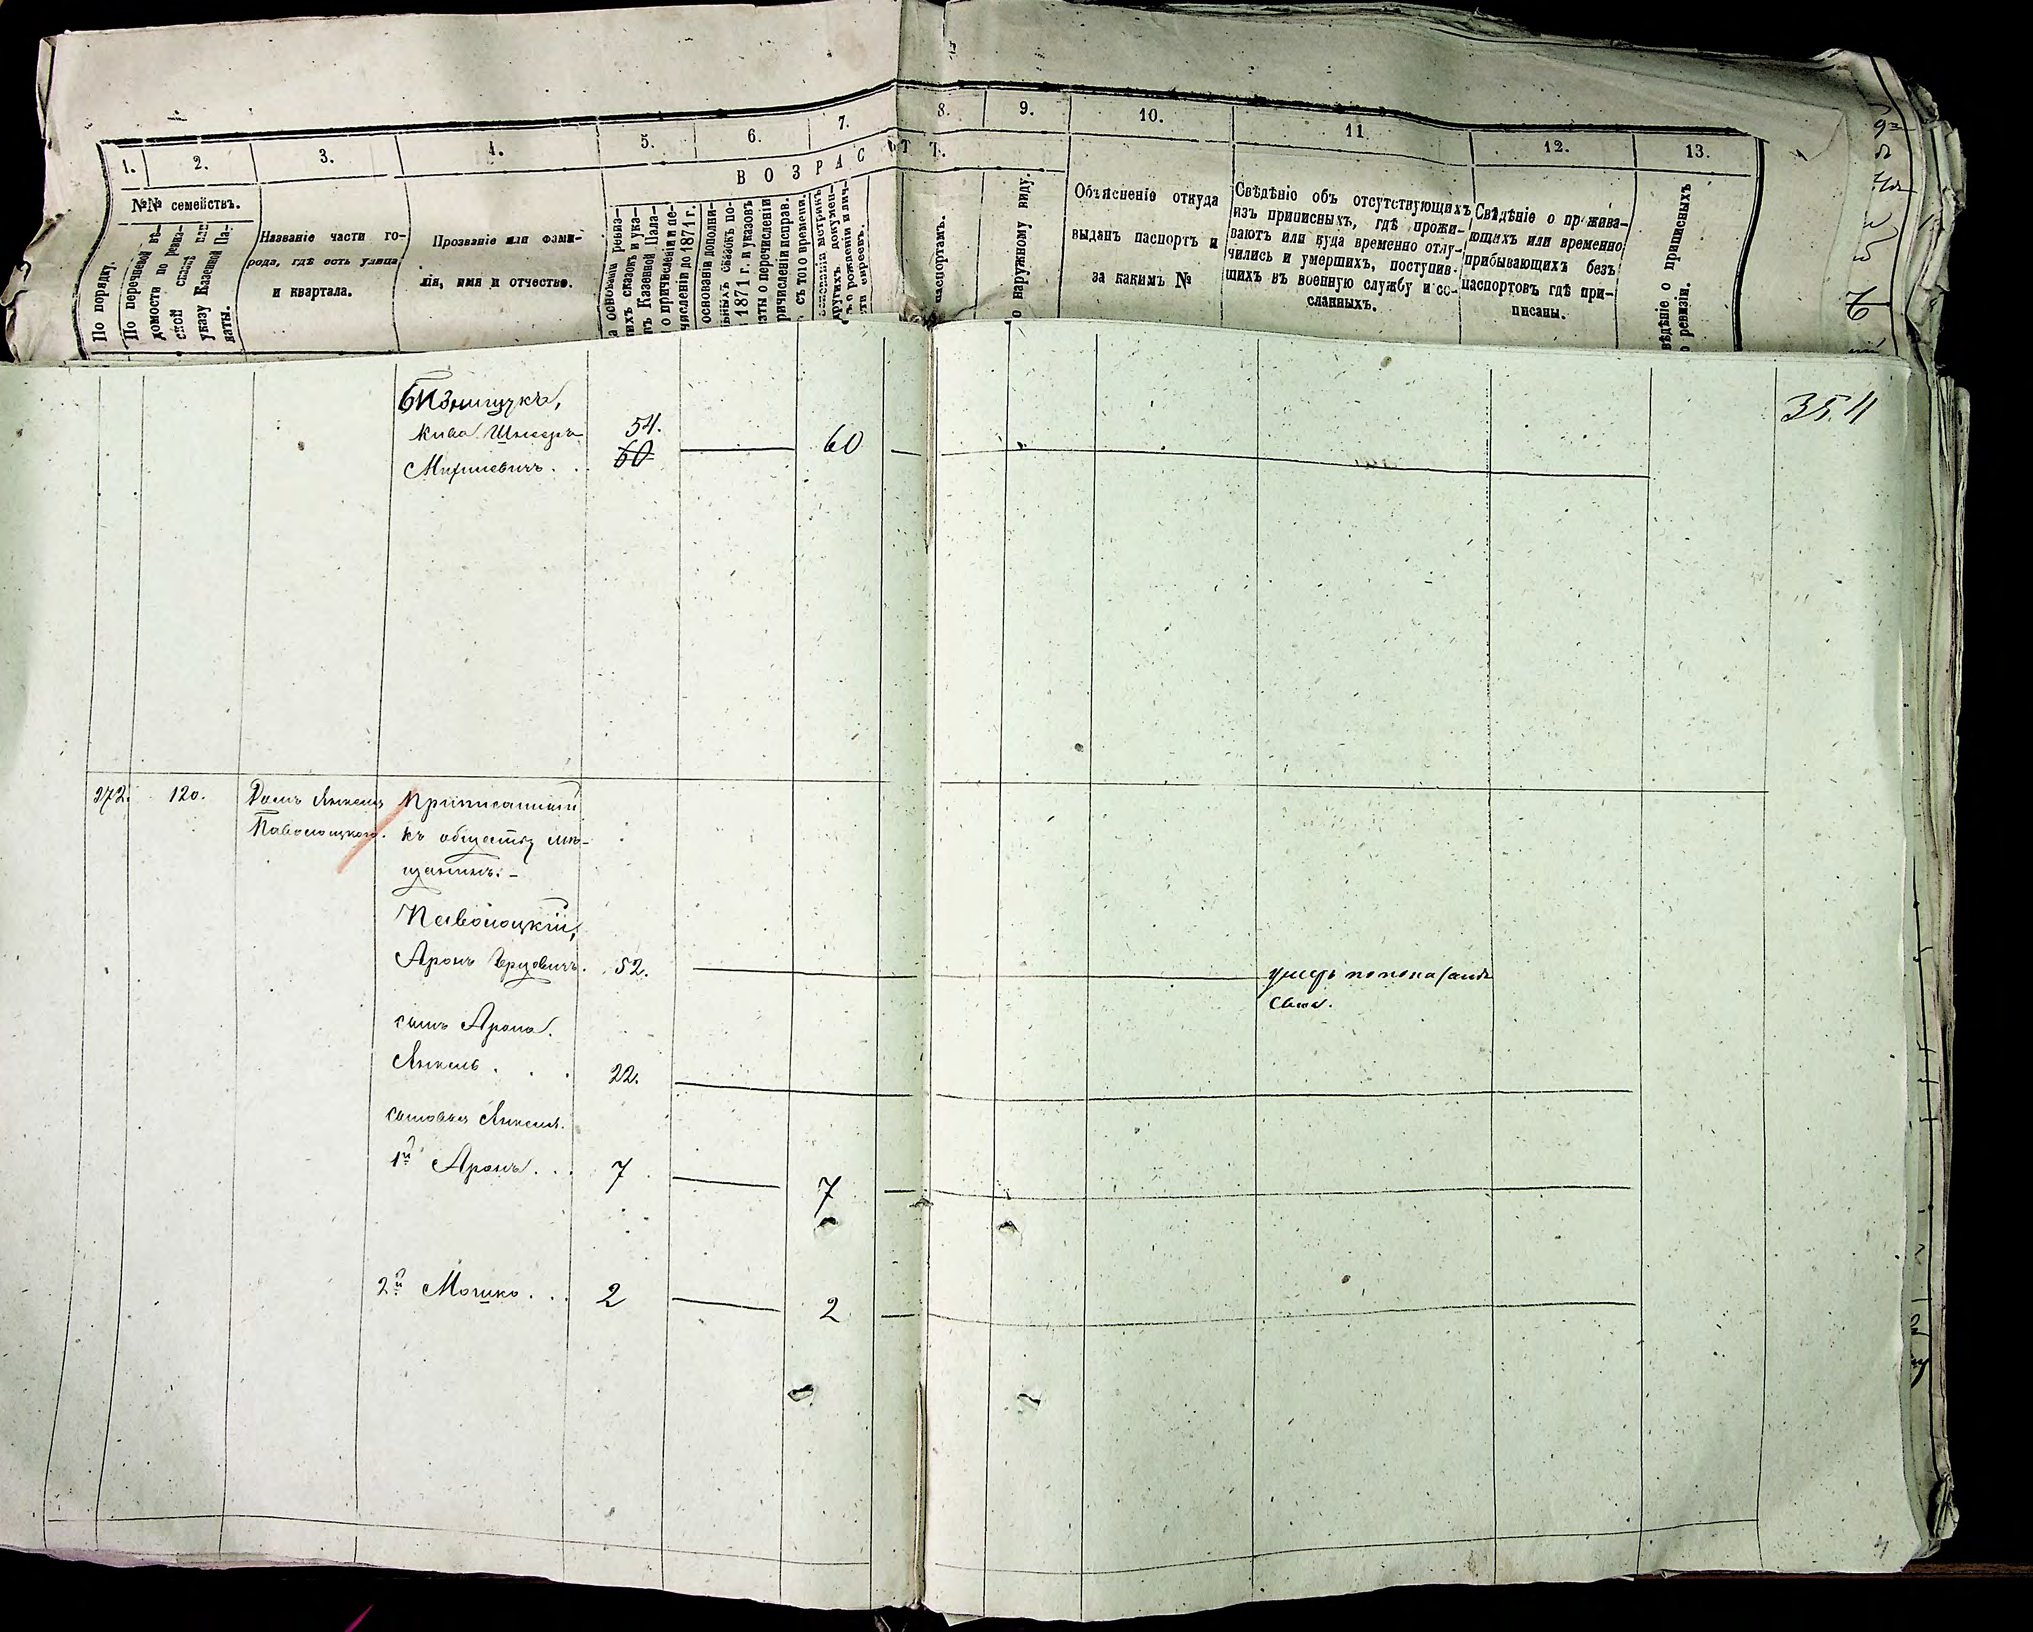 1. 2. 3. 4. 5. 6. 7. 8. 9. 10. 11. 12. 13.
ВОЗРАСТЪ.
№№ семействъ.
По порядку.
По перечневой вѣ-
домости по ревиз-
ской сказкѣ или
указу Казенной Па-
латы.
Названіе части го-
рода, гдѣ есть улица
и квартала.
Прозваніе или фами-
лія, имя и отчество.
паспортамъ.
наружному виду.
Объясненіе откуда
выданъ паспортъ и
за какимъ №
Свѣдѣніо объ отсутствующихъ
изъ приписныхъ, гдѣ прожи-
ваютъ или куда временно отлу-
чились и умершихъ, поступив-
шихъ въ военную службу и со-
сланныхъ.
Свѣдѣніе о прожива-
ющихъ или временно
прибывающихъ безъ
паспортовъ гдѣ при-
писаны.
вѣдѣніе о приписныхъ
ревизіи.
354
Бизнищукъ,
Кива Шмееръ 54.
Мошкевичъ . . 60 60
272. 120. Домъ Янкеля Приписанный
Паволоцкаго. къ обществу мѣ-
щанинъ. -
Паволоцкій,
Аронъ Герцовичъ. 52. умеръ по показанію
сына.
сынъ Арона.
Янкель . . . 22.
сыновья Янкеля.
1й Аронъ . . . 7 7
2й Мошко . . . 2 2